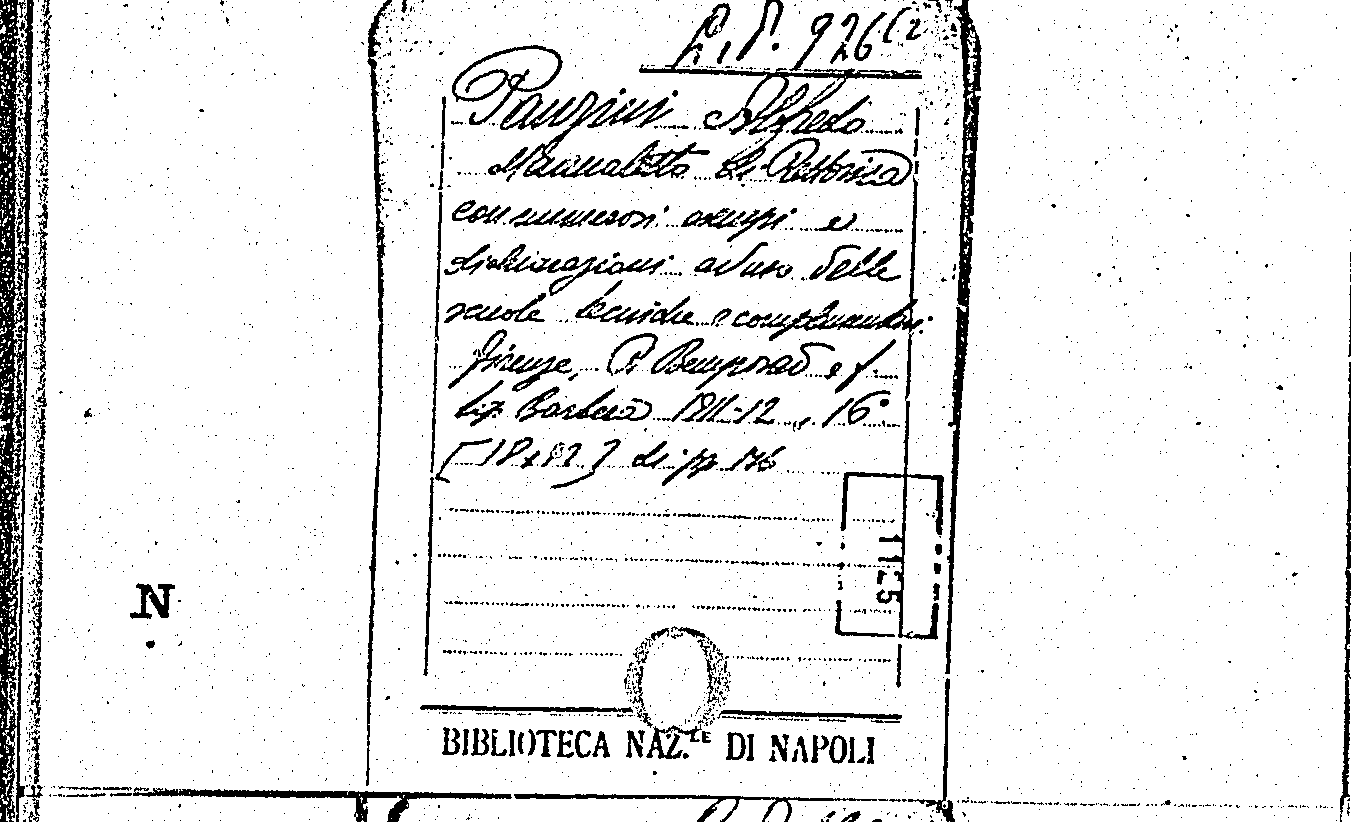 L.P. 926 (2
Panzini Alfredo
Manualetto di Rettorica
con numerosi esempi e
dichiarazioni ad uso delle
scuole tecniche e complementari.
Firenze, R. Bemporad e f.
tip. Barbera 1911-12, 16°
di pp. 176
1125
N
BIBLIOTECA NAZ.LE DI NAPOLI